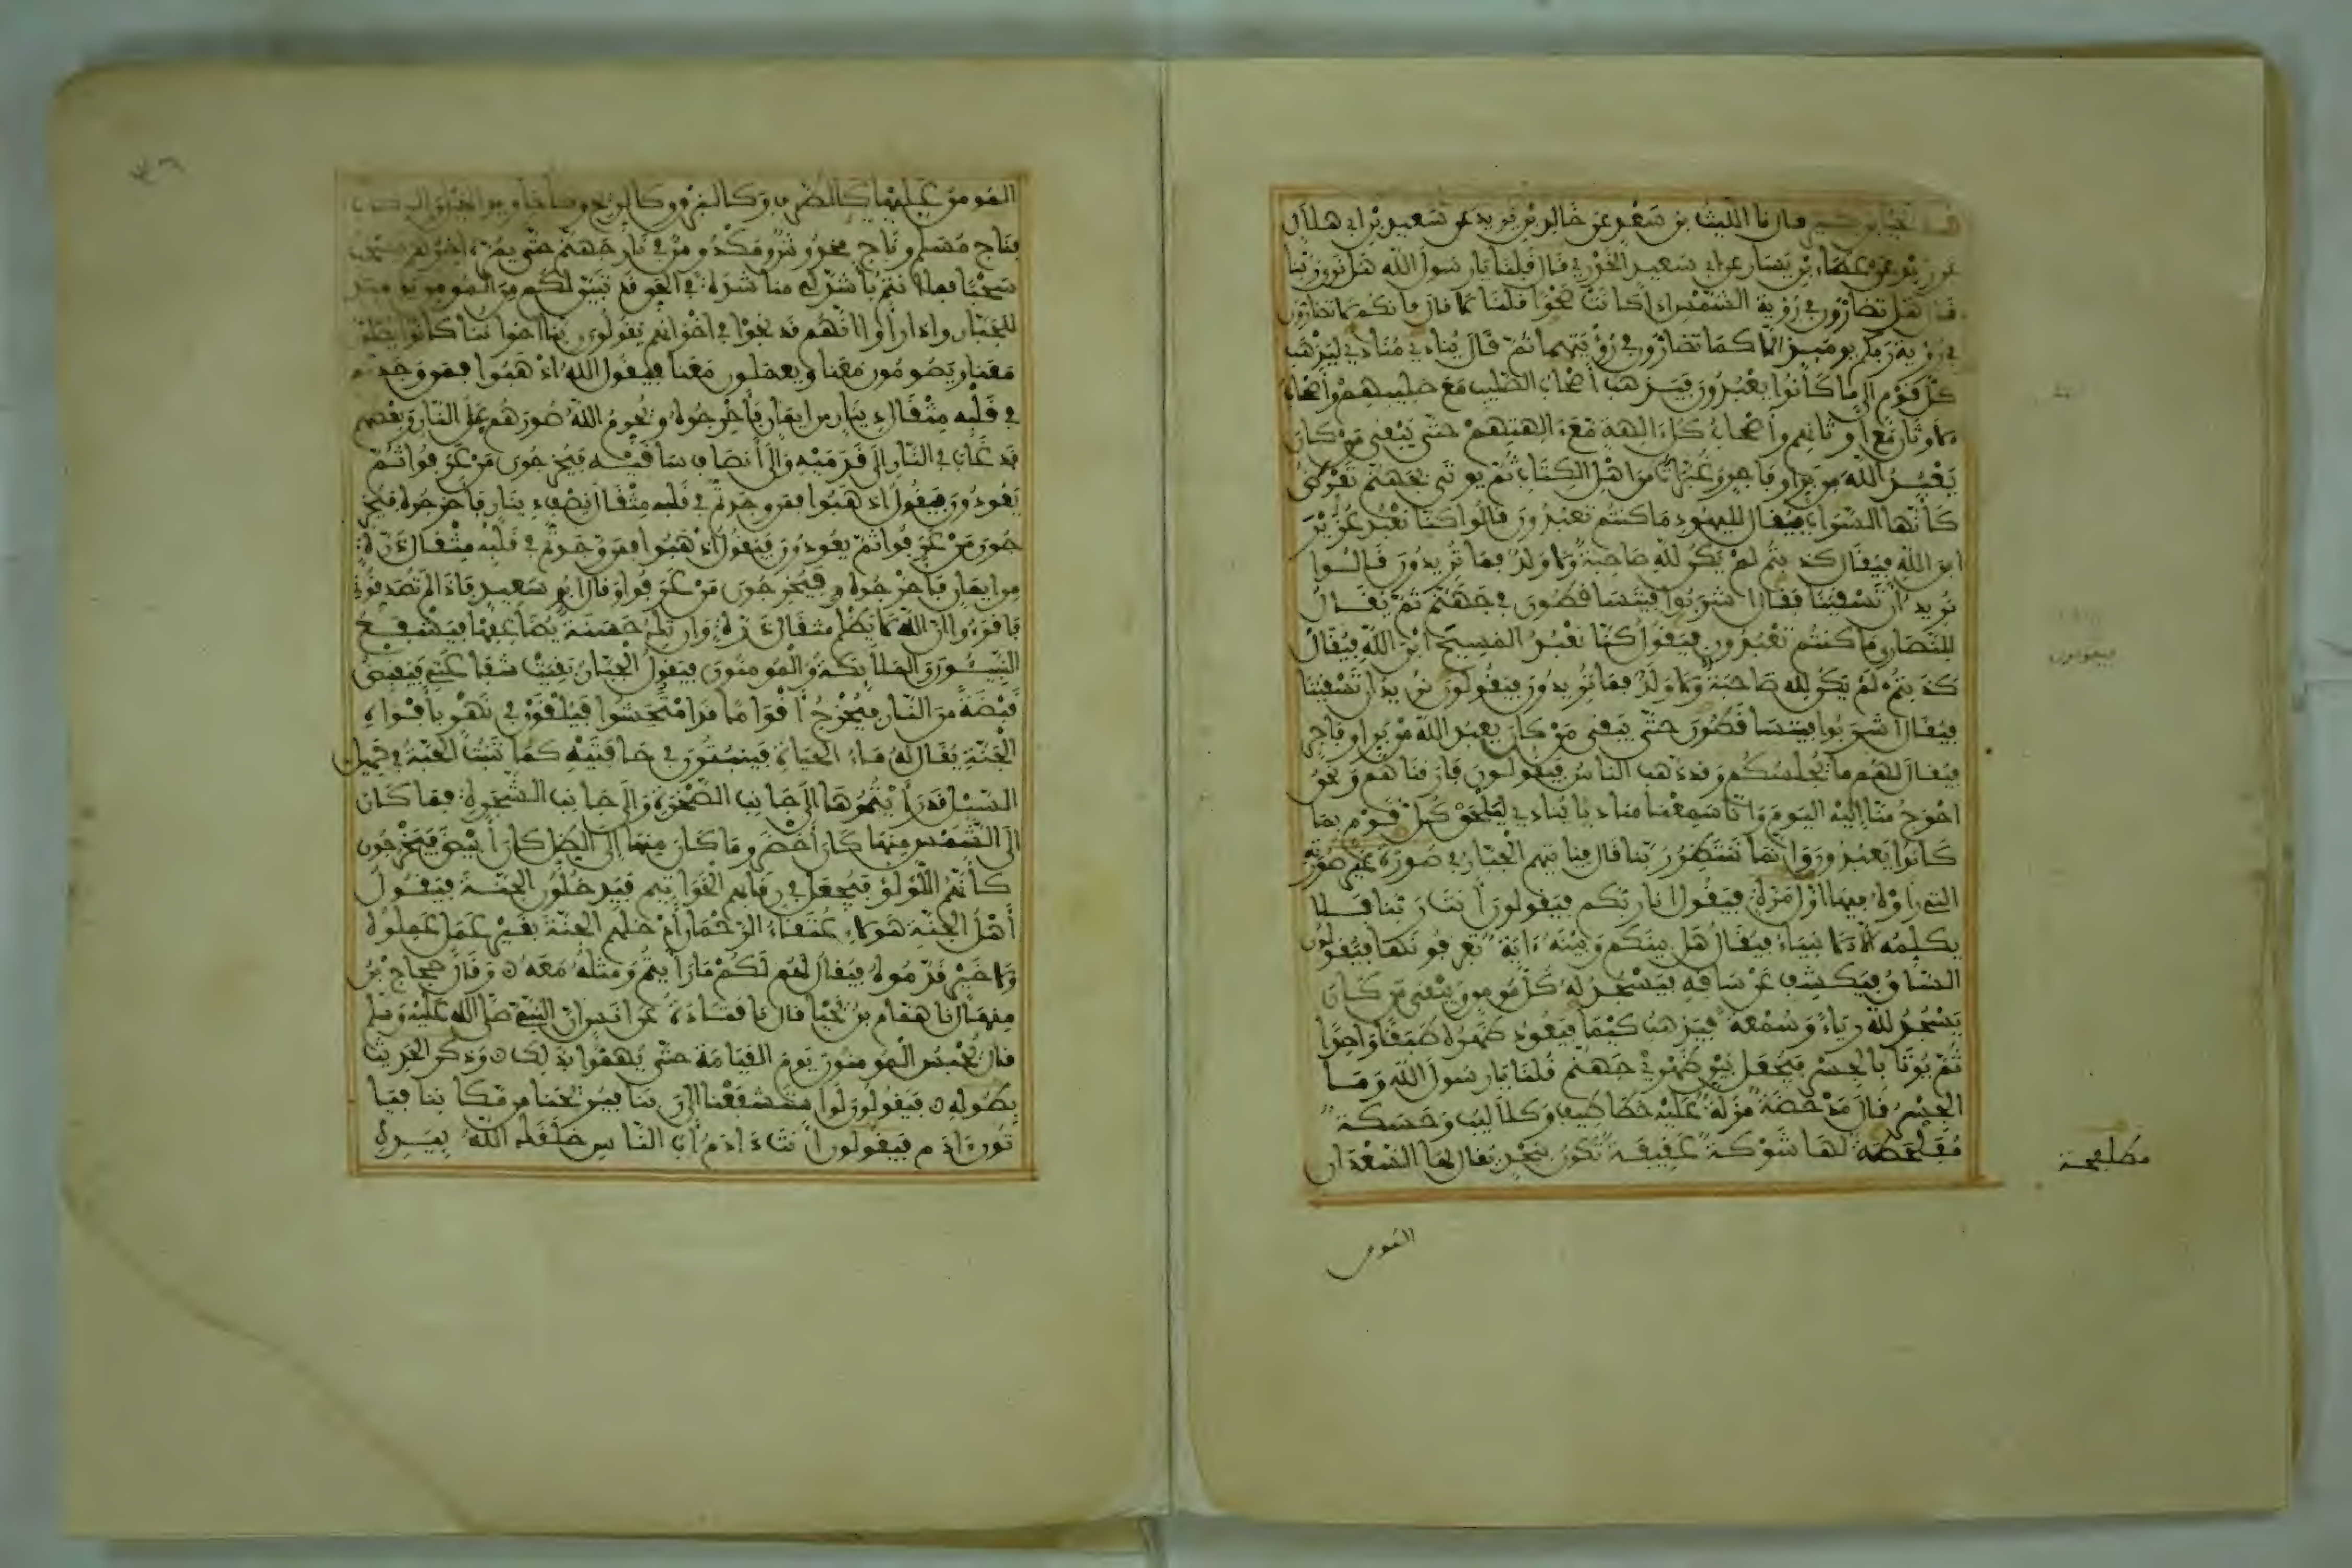 يحيا بن كبير قال نا الليث بن سعد عن خالد بن يزيد عن سعيد بن ابي هلال
عن زيد عن عطاء بن يسار عن ابي سعيد الخدري قال قلنا يا رسول الله هل نرى ربنا
قال هل تضارون في رؤية الشمس اذا كانت صحوا قلنا لا قال فانكم لا تضارون
في رؤية ربكم يومئذ الا كما تضارون في رؤيتهما ثم قال ينادي منادي ليذهب
كل قوم الى ما كانوا يعبدون فيذهب أصحاب الصليب مع صليبهم وأصحاب
الاوثان مع أوثانهم وأصحاب كل ءالهة مع ءالهتهم حتى يبقى من كان
يعبد الله من بر او فاجر وغبرات من اهل الكتاب ثم يوتى بجهنم تعرض
كأنها السراب فيقال لليهود ما كنتم تعبدون قالوا كنا نعبد عزير
ابن الله فيقال كذبتم لم يكن لله صاحبة ولا ولد فما تريدون قالوا
نريد أن تسقينا فيقال اشربوا فيتساقطون في جهنم ثم يقال
للنصارى ما كنتم تعبدون فيقولون كنا نعبد المسيح ابن الله فيقال
كذبتم لم يكن لله صاحبة ولا ولد فما تريدون فيقولون نريد أن تسقينا
فيقال اشربوا فيتساقطون حتى يبقى من كان يعبد الله من بر او فاجر
فيقال لهم ما يجلسكم وقد ذهب الناس فيقولون فارقناهم ونحن
احوج منا اليه اليوم وانا سمعنا مناديا ينادي ليلحق كل قوم بما
كانوا يعبدون وانما ننتظر ربنا قال فياتيهم الجبار في صورة غير صورته
التي رأوه فيها أول مرة فيقول انا ربكم فيقولون أنت ربنا فلا
يكلمه الا الانبياء فيقال هل بينكم وبينه ءاية تعرفونها فيقولون
الساق فيكشف عن ساقه فيسجد له كل مومن ويبقى من كان
يسجد لله رياء وسمعة فيذهب كيما يعود ظهره طبقا واحدا
ثم يوتا بالجسر فيجعل بين ظهري جهنم قلنا يا رسول الله وما
الجسر قال مدحضة مزلة عليه خطاطيف وكلاليب وحسكة
مفلطحة لها شوكة عقيفة تكون بنجد يقال لها السعدان
المومن عليها كالطرف وكالبرق وكالريح وكأجاويد الخيل والركاب
فناج مسلم وناج مخدوش ومكدوس في نار جهنم حتى يمر ءاخرهم يسحب
سحبا فما انتم بأشد لي مناشدة في الحق قد تبين لكم من المومن يومئذ
للجبار واذا رأوا انهم قد نجوا في اخوانهم يقولون ربنا اخواننا كانوا يصلون
معنا ويصومون معنا ويعملون معنا فيقول الله اذهبوا فمن وجدتم
في قلبه مثقال دينار من ايمان فأخرجوه ويحرم الله صورهم على النار وبعضهم
قد غاب في النار الى قدميه والى أنصاف ساقيه فيخرجون من عرفوا ثم
يعودون فيقول اذهبوا فمن وجدتم في قلبه مثقال نصف دينار فأخرجوه فيخر
جون من عرفوا ثم يعودون فيقول اذهبوا فمن وجدتم في قلبه مثقال ذرة
من ايمان فأخرجوه فيخرجون من عرفوا وقال ابو سعيد فاذا لم تصدقوني
فاقرءوا ان الله لا يظلم مثقال ذرة وان تك حسنة يضاعفها فيشفع
النبيئون والملائكة والمومنون فيقول الجبار بقيت شفاعتي فيقبض
قبضة من النار فيخرج أقواما قد امتحشوا فيلقون في نهر بأفواه
الجنة يقال له ماء الحياة فينبتون في حافتيه كما تنبت الحبة في حميل
السيل قد رأيتموها الى جانب الصخرة والى جانب الشجرة فما كان
الى الشمس منها كان أخضر وما كان منها الى الظل كان أبيض فيخرجون
كأنهم اللؤلؤ فيجعل في رقابهم الخواتيم فيدخلون الجنة فيقول
أهل الجنة هولاء عتقاء الرحمان أدخلهم الجنة بغير عمل عملوه
ولا خير قدموه فيقال لهم لكم ما رأيتم ومثله معه وقال حجاج بن
منهال نا همام بن يحيا قال نا قتادة عن انس ان النبي صلى الله عليه وسلم
قال يحبس المومنون يوم القيامة حتى يهموا بذلك وذكر الحديث
بطوله فيقولون لو استشفعنا الى ربنا فيريحنا من مكاننا فيا
تون ءادم فيقولون أنت ءادم أب الناس خلقك الله بيده
مفلطحة
المومن